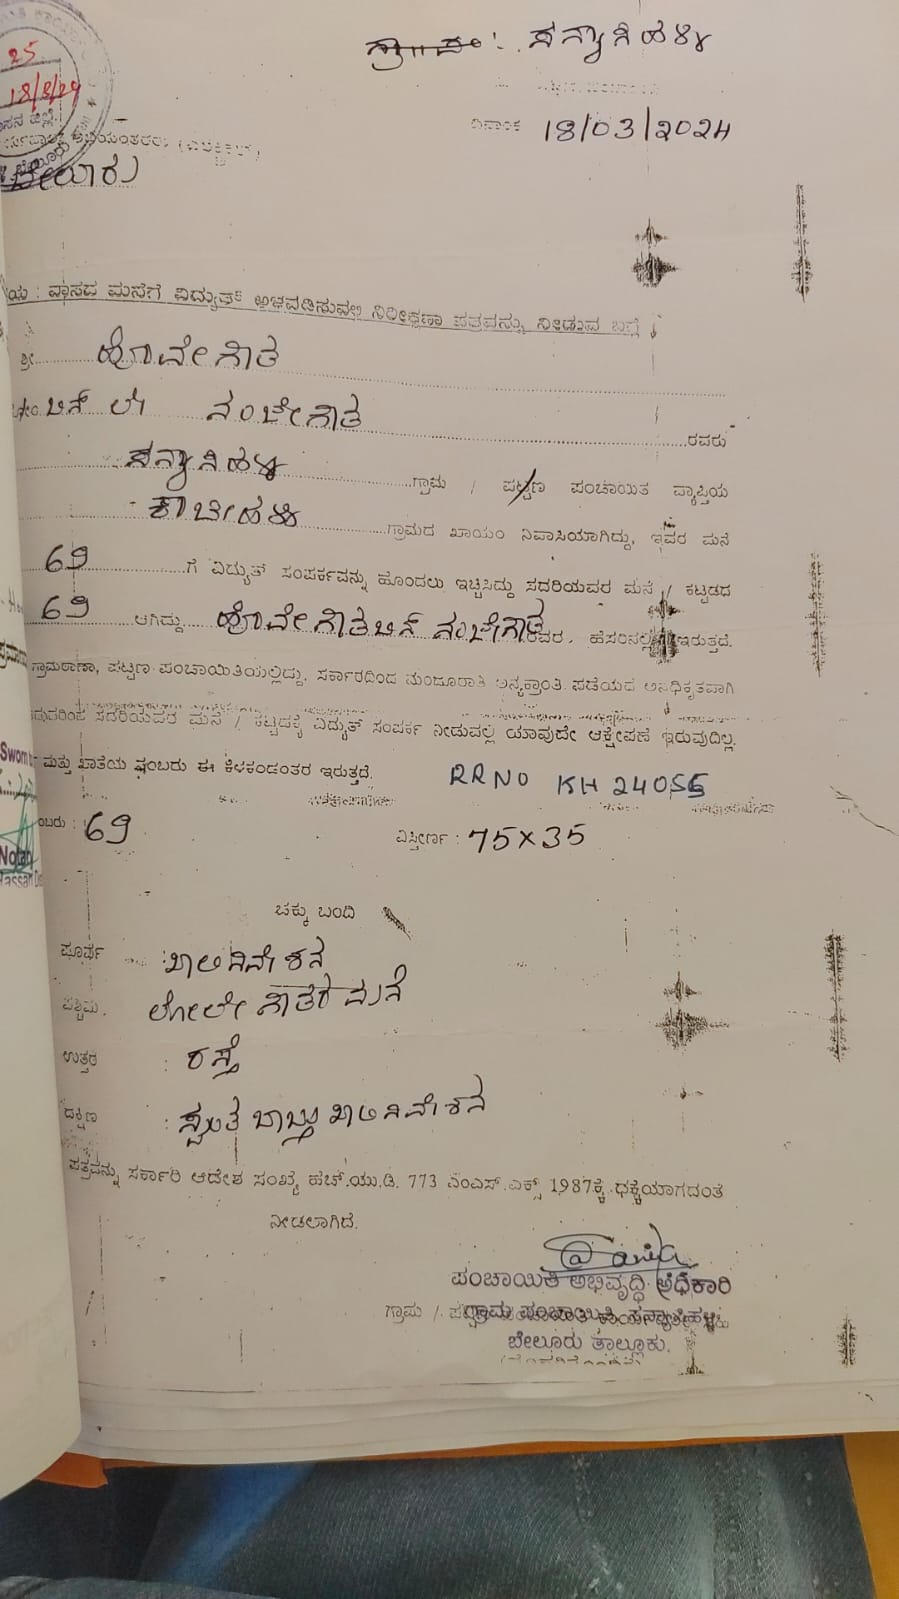 ಗ್ರಾ|| ಪಂ: ಸನ್ಯಾಸಿಹಳ್ಳಿ
25
18/8/29
ದಿನಾಂಕ 18/03/2024
ಬೇಲೂರು
ವಾಸದ ಮನೆಗೆ ವಿದ್ಯುತ್ ಅಳವಡಿಸುವಲ್ಲಿ ನಿರೀಕ್ಷಣಾ ಪತ್ರವನ್ನು ನೀಡುವ ಬಗ್ಗೆ
ಶ್ರೀ ಹೂವೇಗೌಡ
ಬಿನ್ ಲೇ ನಂಜೇಗೌಡ ರವರು
ಸನ್ಯಾಸಿಹಳ್ಳಿ ಗ್ರಾಮ / ಪಟ್ಟಣ ಪಂಚಾಯಿತಿ ವ್ಯಾಪ್ತಿಯ
ಗ್ರಾಮದ ಖಾಯಂ ನಿವಾಸಿಯಾಗಿದ್ದು, ಇವರ ಮನೆ
69 ಗೆ ವಿದ್ಯುತ್ ಸಂಪರ್ಕವನ್ನು ಹೊಂದಲು ಇಚ್ಚಿಸಿದ್ದು ಸದರಿಯವರ ಮನೆ / ಕಟ್ಟಡದ
69 ಆಗಿದ್ದು ಹೂವೇಗೌಡ ಬಿನ್ ನಂಜೇಗೌಡ ರವರ ಹೆಸರಿನಲ್ಲಿ ಇರುತ್ತದೆ.
ಗ್ರಾಮಠಾಣಾ, ಪಟ್ಟಣ ಪಂಚಾಯಿತಿಯಲ್ಲಿದ್ದು, ಸರ್ಕಾರದಿಂದ ಮಂಜೂರಾತಿ ಅನ್ಯಕ್ರಾಂತಿ ಪಡೆಯದೆ ಅನಧಿಕೃತವಾಗಿ
ಸದರಿಯವರ ಮನೆ / ಕಟ್ಟಡಕ್ಕೆ ವಿದ್ಯುತ್ ಸಂಪರ್ಕ ನೀಡುವಲ್ಲಿ ಯಾವುದೇ ಆಕ್ಷೇಪಣೆ ಇರುವುದಿಲ್ಲ.
ಮತ್ತು ಖಾತೆಯ ನಂಬರು ಈ ಕೆಳಕಂಡಂತರ ಇರುತ್ತದೆ. RRNO KH 24055
69 ವಿಸ್ತೀರ್ಣ : 75x35
ಚಕ್ಕು ಬಂದಿ
ಪೂರ್ವ : ಖಾಲಿ ನಿವೇಶನ
ಪಶ್ಚಿಮ. ಲೋಲೇಗೌಡರ ಮನೆ
ಉತ್ತರ : ರಸ್ತೆ
ದಕ್ಷಿಣ : ಸ್ವಂತ ಬಾಬ್ತು ಖಾಲಿ ನಿವೇಶನ
ಪತ್ರವನ್ನು ಸರ್ಕಾರಿ ಆದೇಶ ಸಂಖ್ಯೆ ಹೆಚ್.ಯು.ಡಿ. 773 ಎಂಎಸ್.ಎಕ್ಸ್ 1987ಕ್ಕೆ ಧಕ್ಕೆಯಾಗದಂತೆ
ನೀಡಲಾಗಿದೆ.
ಪಂಚಾಯಿತಿ ಅಭಿವೃದ್ಧಿ ಅಧಿಕಾರಿ
ಗ್ರಾಮ ಪಂಚಾಯಿತಿ, ಸನ್ಯಾಸಿಹಳ್ಳಿ
ಬೇಲೂರು ತಾಲ್ಲೂಕು.
Sworn
Notar